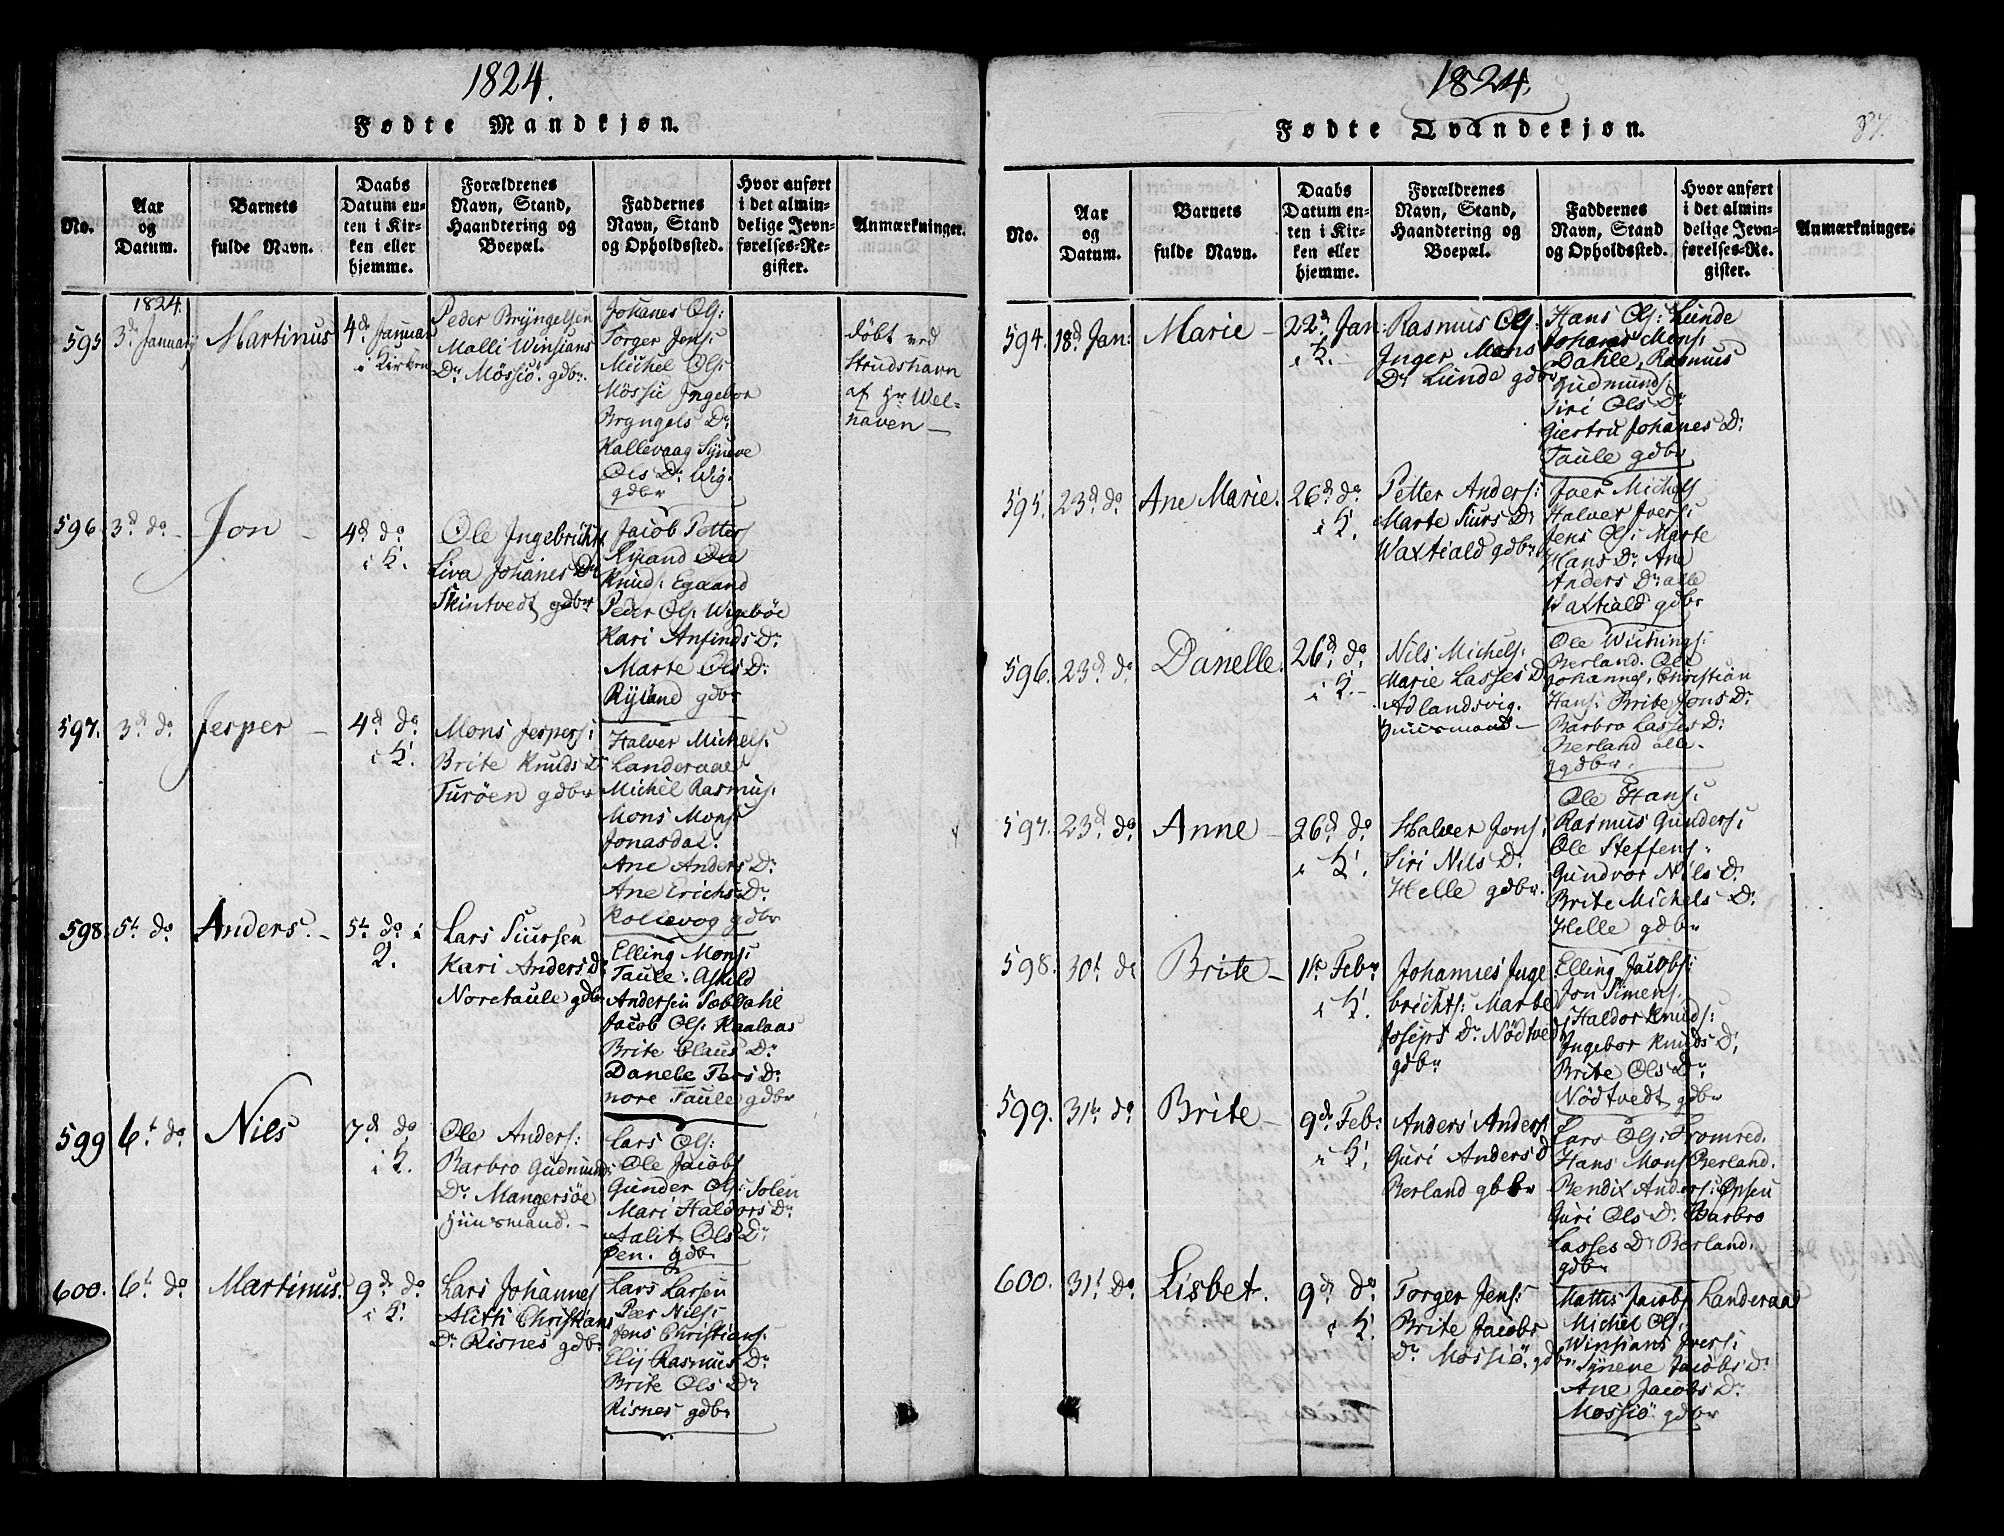 1824.
Fødte Mandkjøn.
No.
Aar
og
Datum.
Barnets
fulde Navn.
Daabs
Datum en-
ten i Kir-
ken eller
hjemme.
Forældrenes
Navn, Stand,
Haandtering og
Boepæl.
Faddernes
Navn, Stand
og Opholdssted.
Hvor anført
i det almin-
delige Jevn-
førelses-Re-
gister.
Anmærkninger.
595
1824.
3d January
Martinus
4de Januar
i Kirken
Peder Bryngelsen
Malli Winsians
Dr Mössiö. gdbr.
Johanes Ols:
Torger Jens:
Michel Ols:
Mössie Ingebor
Bryngels Dr
Kallevaag Syneve
Ols Dr Wig:
gdbr
döbt ved
Strudshavn
af Hr Wel-
haven —
596
3d do -
Jon -
4d do
i K.
Ole Ingebricts
Liva Johanes Dr
Skintvedt gdbr
Jacob Petters
Ryland Ole
Knuds: Egaand
Peder Ols: Wigebøe
Kari Anfinds Dr
Marte Ols D:
Ryland gdbr
597.
3d do
Jesper -
4d do
i K.
Mons Jespers:
Brite Knuds D
Turöen gdbr
Halver Michels:
Landeraae
Michel Rasmus:
Mons Mons:
Jonasdal.
Ane Anders Dr
Ane Erichs Dr
Kollevog gdbr
598.
5t do
Anders. -
5t do i
K.
Lars Siursen
Kari Anders D:
Noretaule gdbr
Elling Mons:
Taule. Askild
Andersen Sæbdahl
Jacob Ols: Kaalaas
Brite Claus Dr
Danele Pers D:
nore Taule gdbr
599
6t do
Nils
7d do
i K.
Ole Anders:
Barbro Gudmund:
Dr Mangersöe
Huusmand. -
Lars Ols:
Ole Jacobs
Gunder Ols: Solen
Mari Haldors Dr
Aalit Ols Dr
pen. gdbr
600.
6t do
Martinus.
9de do
i K.
Lars Johannes
Aletti Christians
Dr Risnes gdbr
Lars Larsen
Pær Nils:
Jens Christians:
Elij Rasmus Dr
Brite Ols Dr
Risnes gdbr
1824.
Fødte Qvindekjøn.
87.
No.
Aar
og
Datum.
Barnets
fulde Navn.
Daabs
Datum en-
ten i Kir-
ken eller
hjemme.
Forældrenes
Navn, Stand,
Haandtering og
Boepæl.
Faddernes
Navn, Stand
og Opholdssted.
Hvor anført
i det almin-
delige Jevn-
førelses-Re-
gister.
Anmærkninger.
594.
18d Jan:
Marie -
22d Jan:
i K. -
Rasmus Ols:
Inger Mons
Dr Lunde gdbr
Hans Ols: Lunde
Johanes Mons:
Dahle, Rasmus
Gudmunds:
Siri Ols Dr
Giertru Johanes D:
Taule gdbr
595.
23d do
Ane Marie.
26d do
i K.
Petter Anders:
Marte Siurs Dr
Waxtiald gdbr
Iver Michels
Halver Ivers:
Jens Ols: Marte
Hans Dr Ane
Anders Dr alle
Waxtiald gdbr
596.
23d do
Danelle.
26d do
i K. -
Nils Michels:
Marie Lasses D
Adlandsvig.
Huusmand -
Ole Wichings:
Berland. Ole
Johannes, Christian
Hans: Brite Jons Dr
Barbro Lasses D:
Berland alle.
gdbr.
597.
23d do.
Anne -
26d do
i K.
Halver Jons:
Siri Nils D:
Helle gdbr.
Ole Hans:
Rasmus Gunders:
Ole Steffens:
Gundvor Nils D:
Brite Michels D:
Helle gdbr
598.
30t do
Brite -
1te Febr
i K.
Johannes Inge
brichts: Marte
Joseps Dr Nödtvedt
gdbr
Elling Jacobs:
Jon Simens.
Haldor Knuds:
Ingebor Knuds D:
Brite Ols Dr
Nödtvedt gdbr
599.
31te do
Brite -
9de Feb:
i K.
Anders Anders
Guri Anders D
Berland gbbr
Lars Ols: Tromred.
Hans Mons Berland.
Bendix Anders: Epsen
Guri Ols D: Barbro
Lasses Dr Berland.
gdbr
600.
31t do.
Lisbet.
9de do
i K.
Torger Jens:
Brite Jacobs
Dr Mossiö. gdbr
Mattis Jacobs Landeraae
Michel Ols:
Winsians Ivers:
Syneve Jacobs Dr
Ane Jacobs Dr
Mossiö gdbr